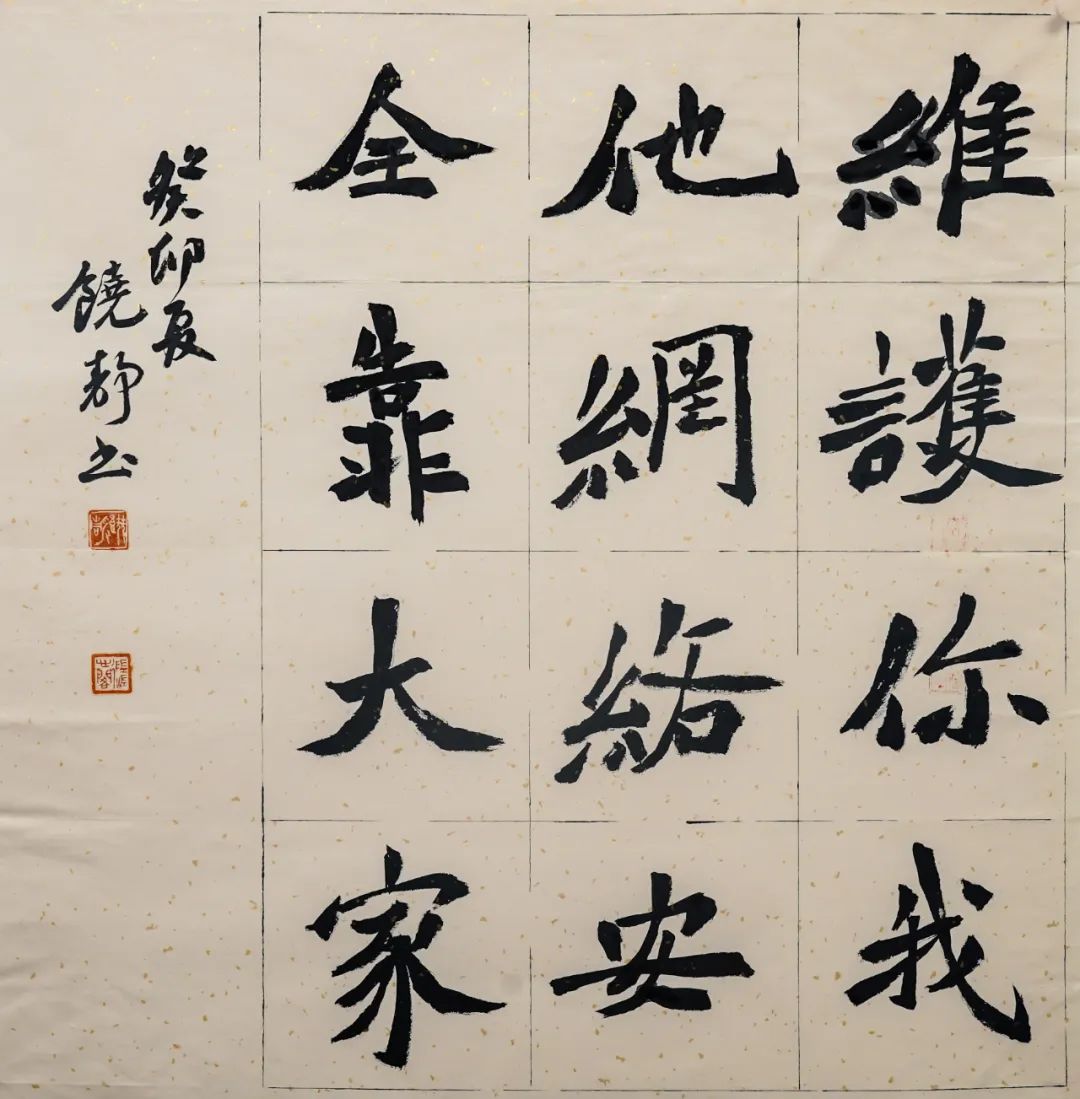 維護你我
他網絡安
全靠大家
癸卯夏
饒靜书